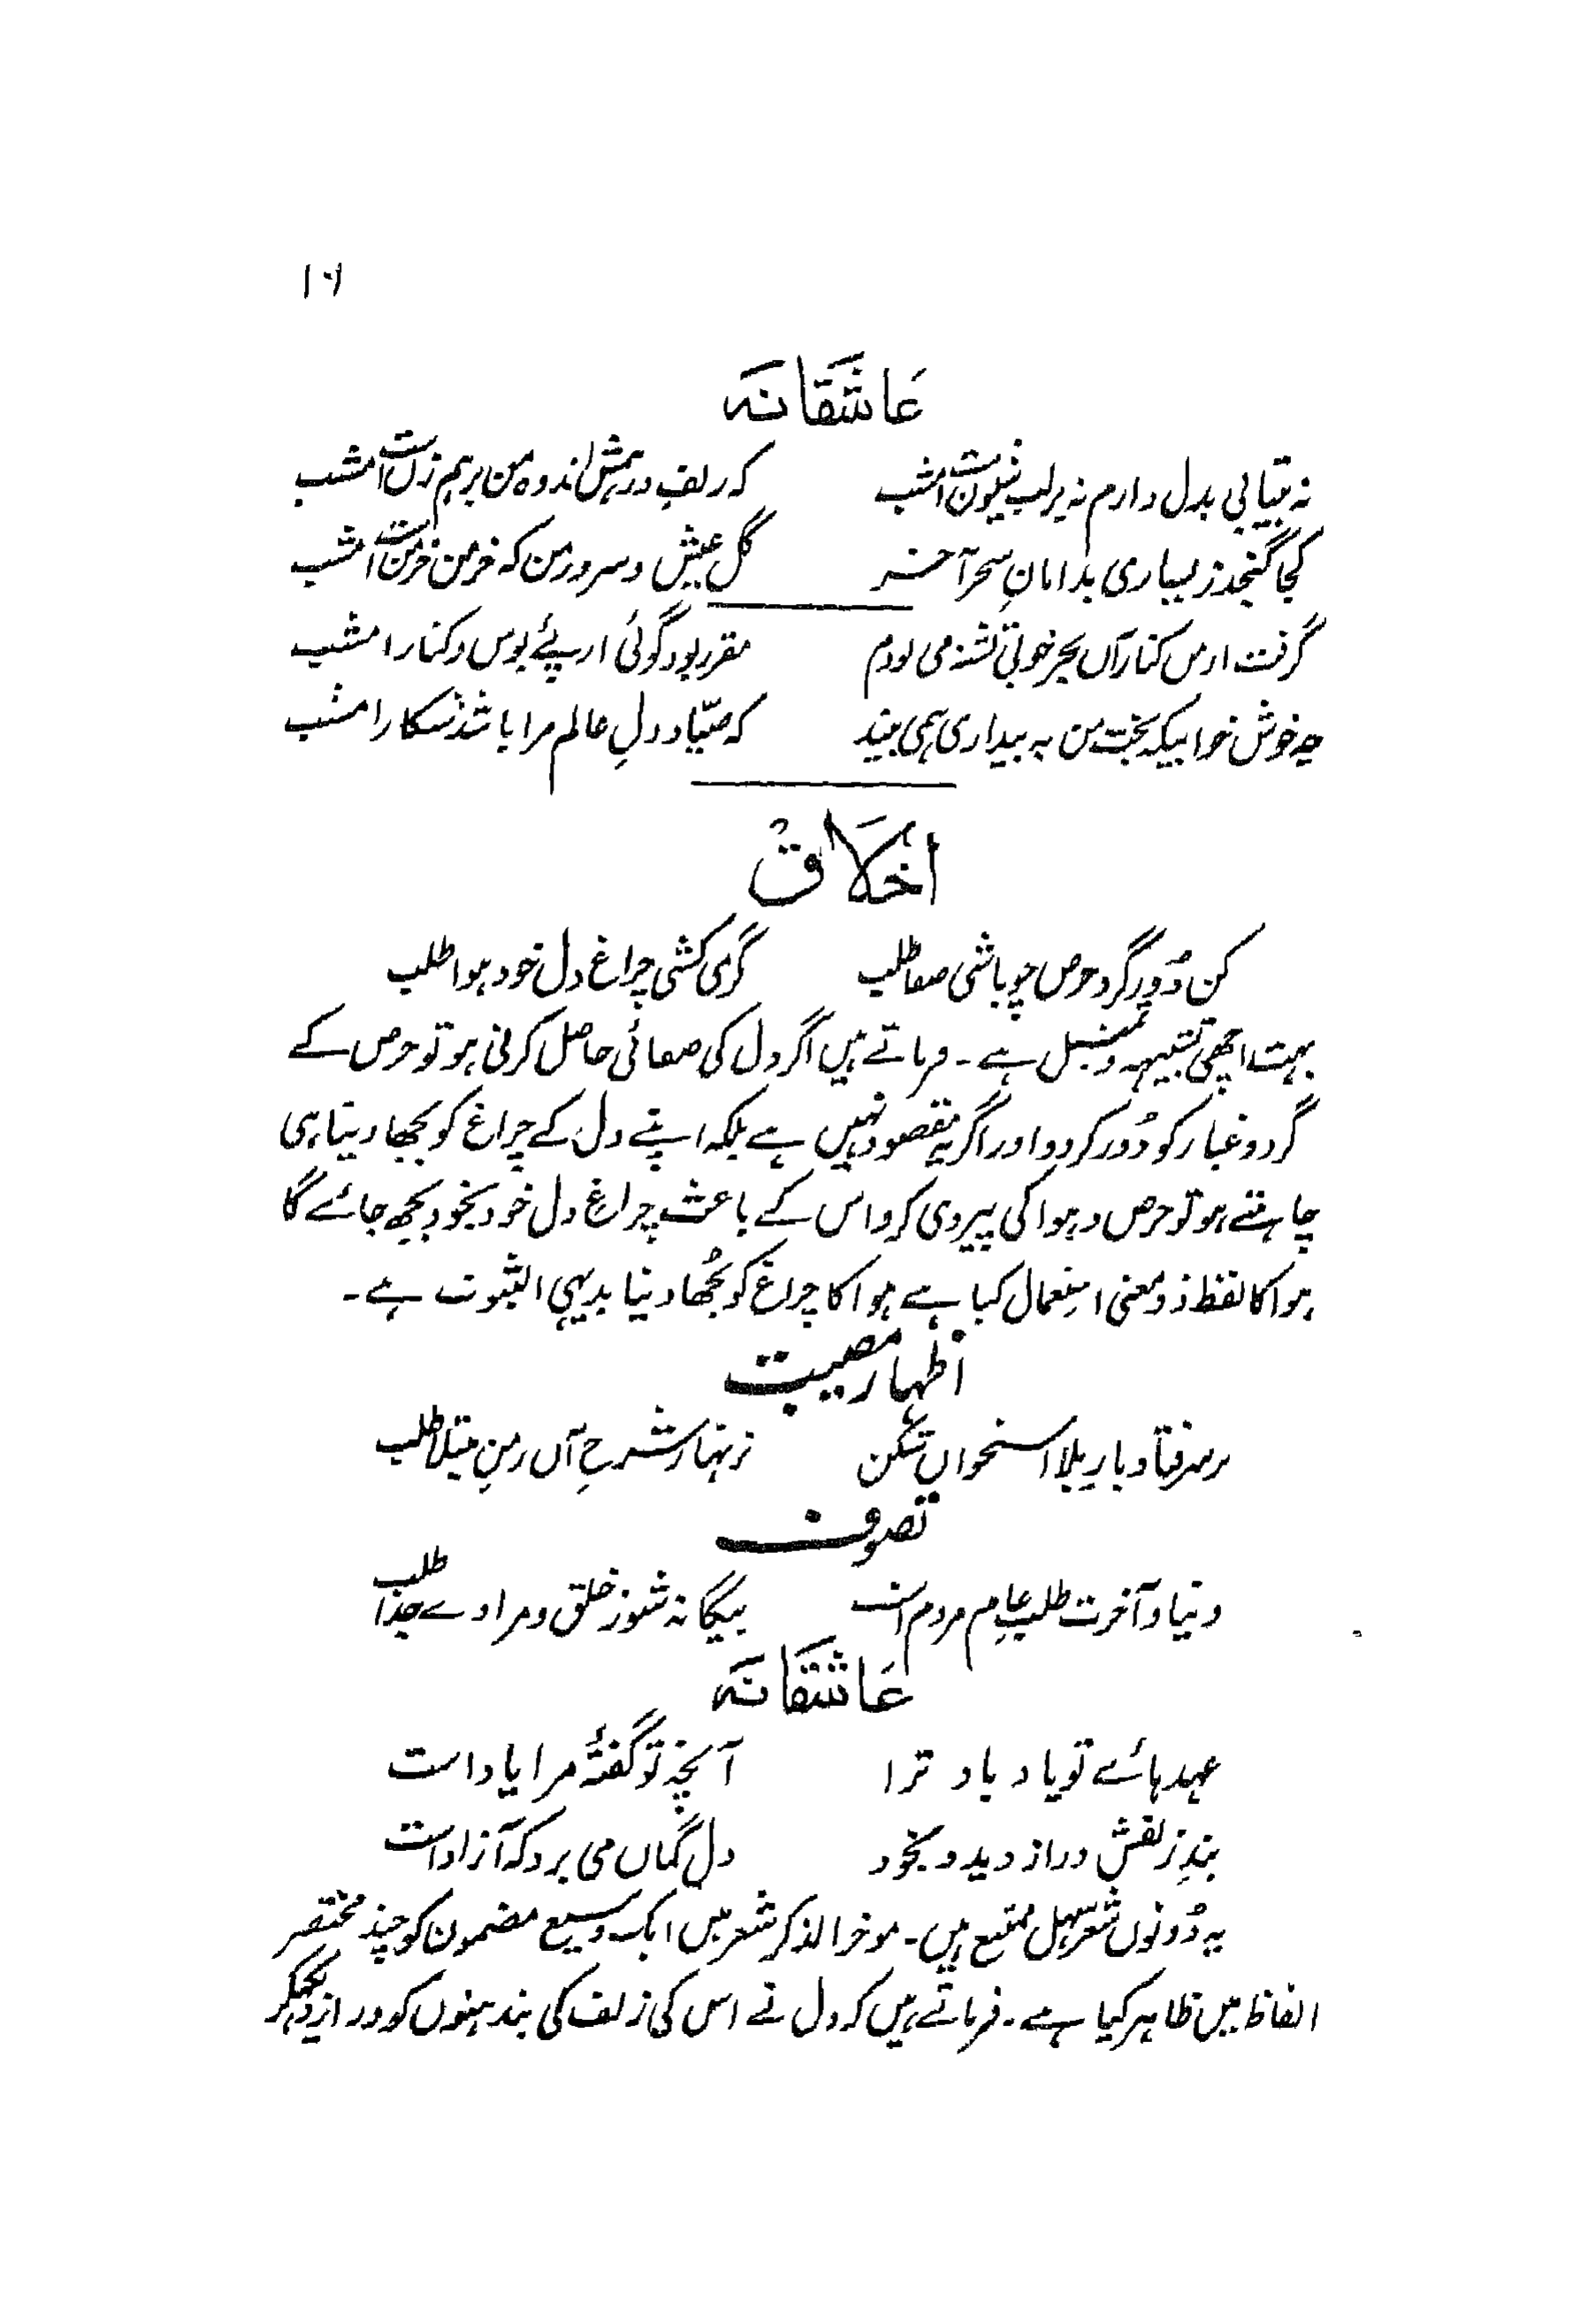 ۱۶
عاشقانہ
نہ بیتابی بدل دارم نہ برلب شیونست امشب کہ زلفِ درہمش اندوہ من برہم زنست امشب
کجا گنجد ز بسیاری بدامانِ سحر آخر گل عیش و سرور من کہ خرمن خرمنست امشب
گرفت از من کنار آں بحر خوبی تشنہ می بودم مقرر بود گوئی از پئے بوس و کنار امشب
چہ خوش خوابیکہ بخت من بہ بیداری ہمی بیند کہ صیّاد دلِ عالم مرا باشد شکار امشب
اخلاق
کن دُور گرد حرص چو باشی صفا طلب گرمی کشی چراغ دل خود ہوا طلب
بہت اچھی تشبیہہ و تمثیل ہے۔ فرماتے ہیں اگر دل کی صفائی حاصل کرنی ہو تو حرص کے
گرد و غبار کو دُور کر دو اور اگر یہ مقصود نہیں ہے بلکہ اپنے دل کے چراغ کو بجھا دینا ہی
چاہتے ہو تو حرص و ہوا کی پیروی کرو اس کے باعث چراغِ دل خود بخود بجھ جائے گا
ہوا کا لفظ ذو معنی استعمال کیا ہے ہوا کا چراغ کو بُجھا دینا بدیہی الثبوت ہے۔
اظہار مصیبت
برسر فتاد بارِ بلا استخواں شکن زنہار شرحِ آں زمنِ مبتلا طلب
تصوف
دنیا و آخرت طلبِ عام مردم است بیگانہ شو ز خلق و مرادے جدا طلب
عاشقانہ
عہد ہائے تو یاد باد ترا آنچہ تو گفتۂ مرا یاد است
بندِ زلفش دراز دید و بخود دل گماں می برد کہ آزاد است
یہ دُونوں شعر سہل ممتنع ہیں۔ موخرالذکر شعر میں ایک وسیع مضمون کو چند مختصر
الفاظ میں ظاہر کیا ہے۔ فرماتے ہیں کہ دل نے اس کی زلف کی بندہنوں کو دراز دیکھکر